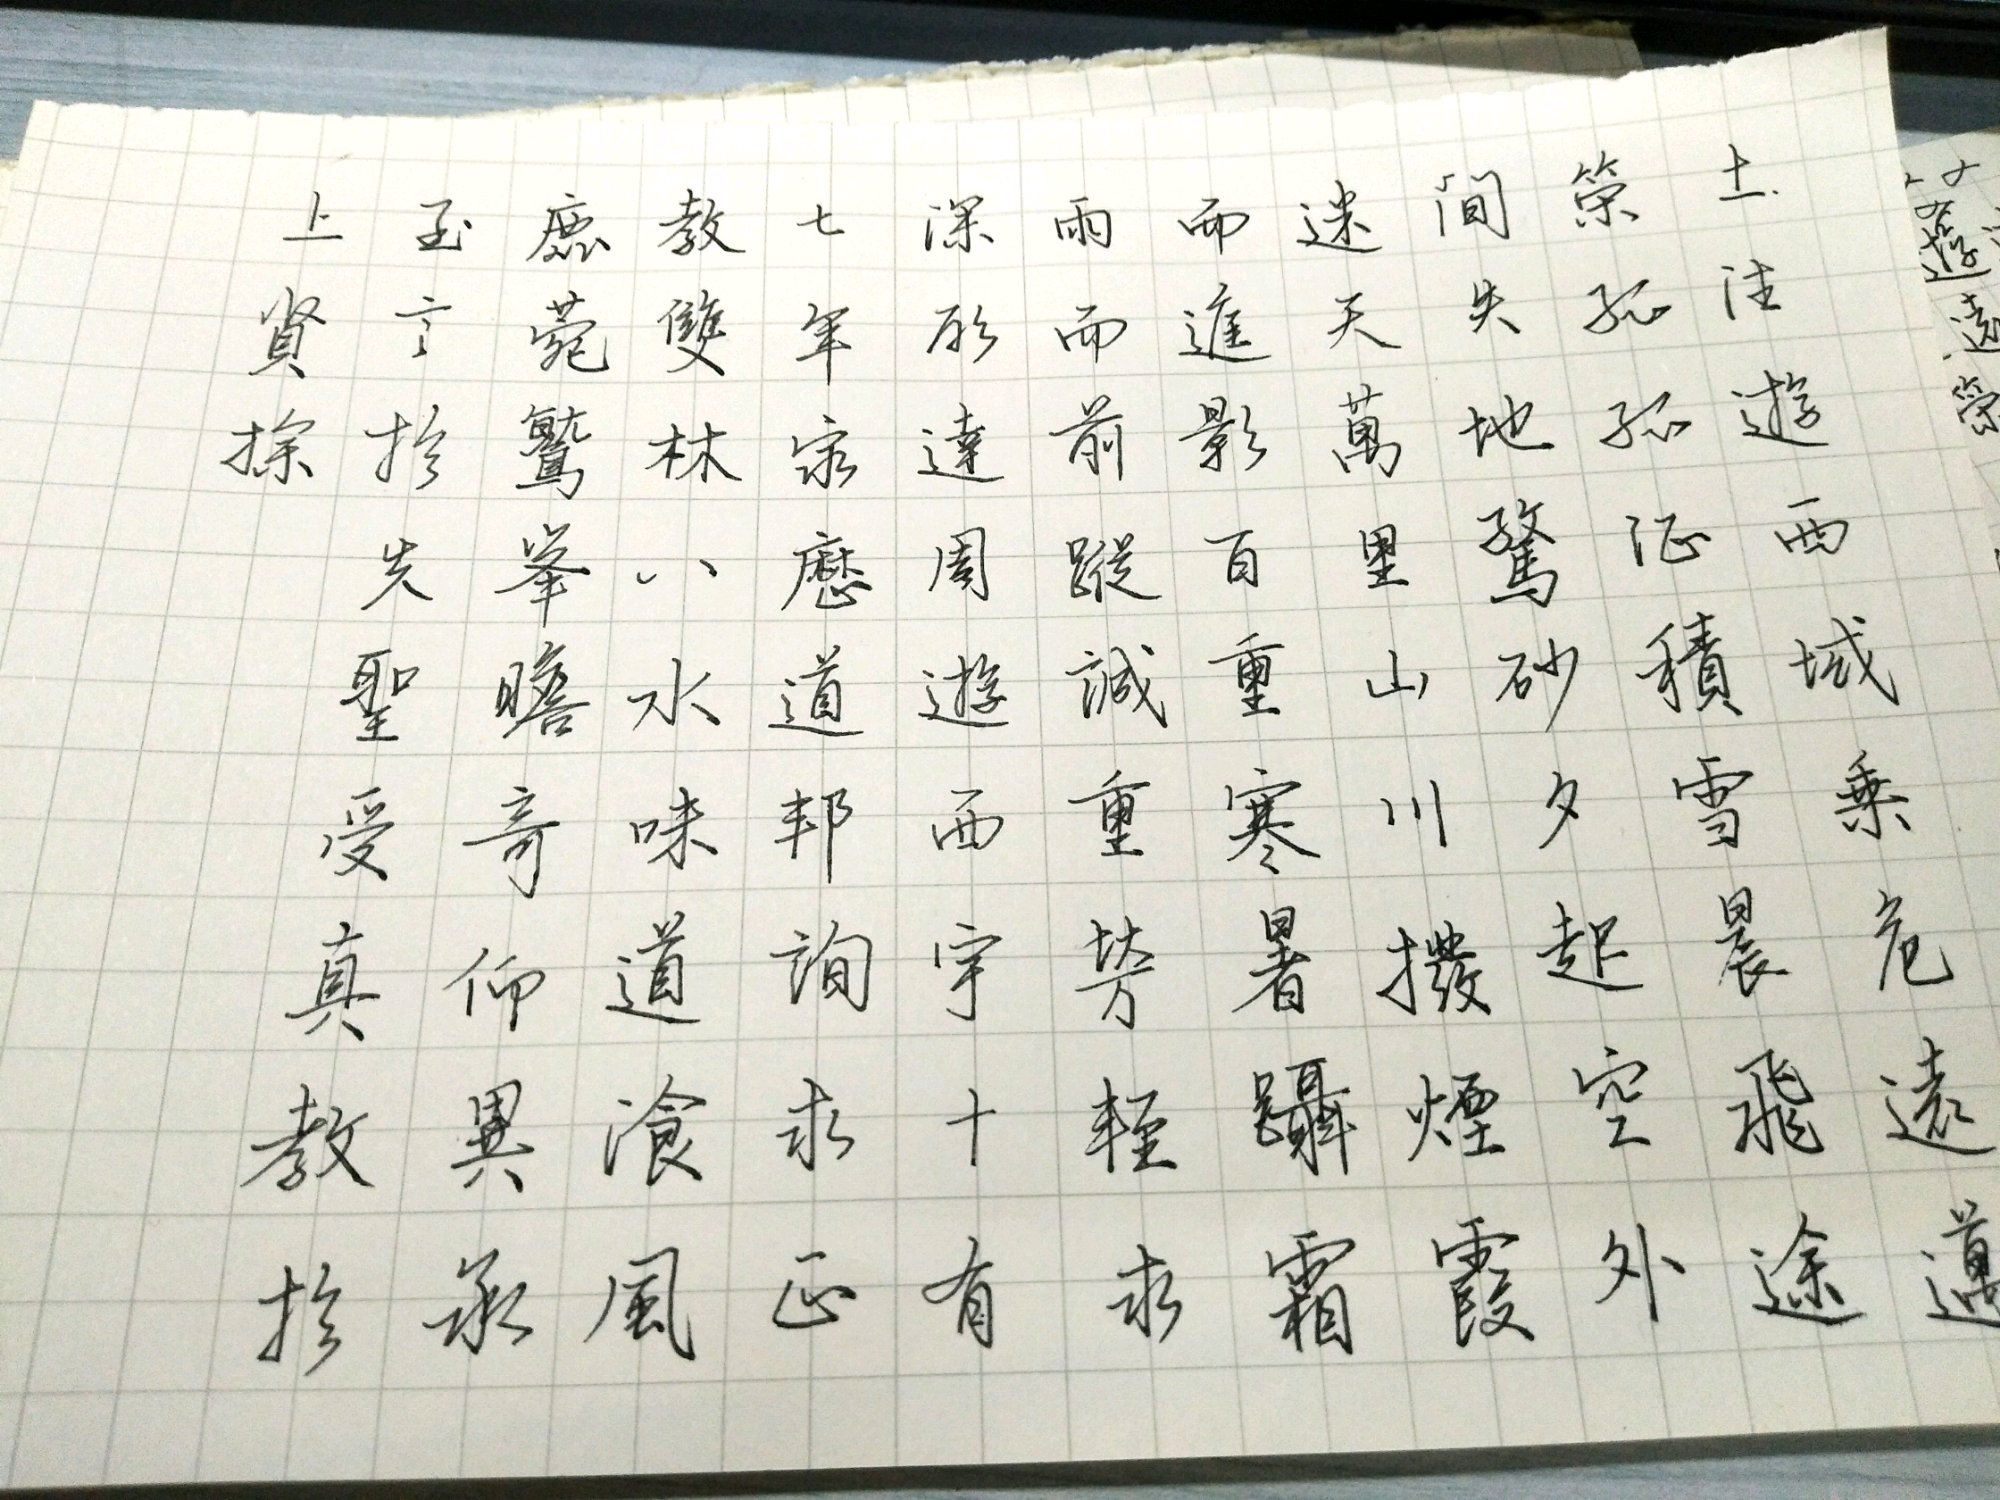 土往遊西域乘危遠邁
策孤孤征積雪晨飛途
間失地驚砂夕起空外
迷天萬里山川撥煙霞
而進影百重寒暑躡霜
雨而前蹤誠重勞輕求
深願達周遊西宇十有
七年窮歷道邦詢求正
教雙林八水味道湌風
鹿菀鷲峯瞻奇仰異承
至言於先聖受真教於
上賢探